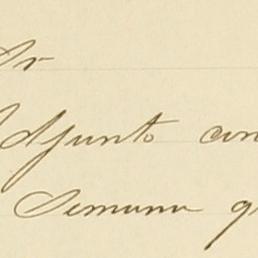 Dr
Adjunto
Semana